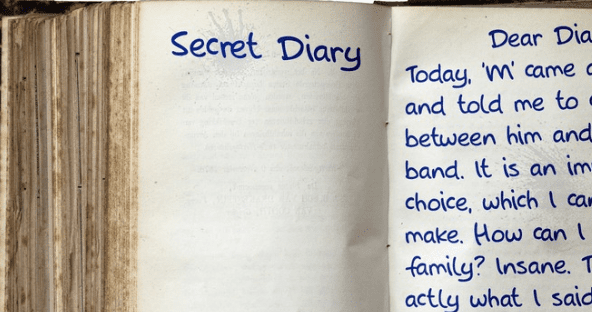 Secret Diary
Dear Dia
Today, 'M' came
and told me to
between him and
band. It is an im
choice, which I ca
make. How can I
family? Insane. T
actly what I said